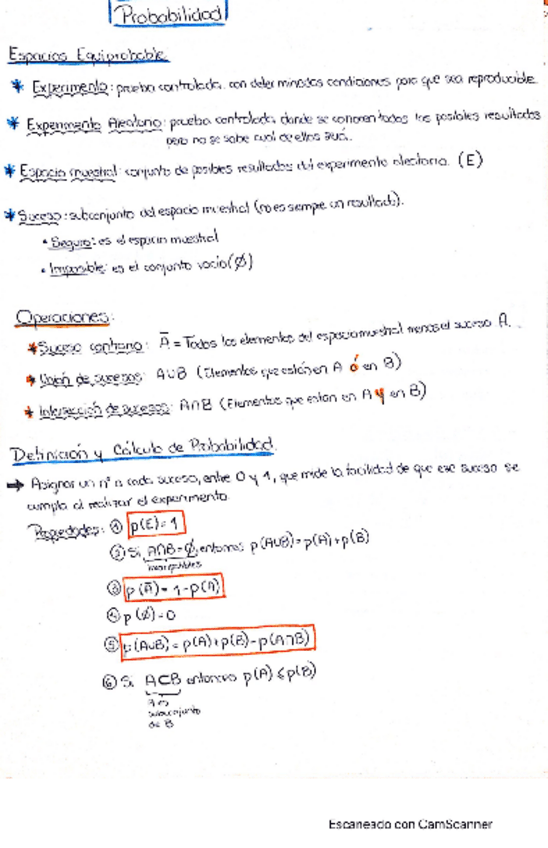 Probabilidad
Espacios Equiprobable
* Experimento: prueba controlada con determinadas condiciones para que sea reproducible.
* Experimento Aleatorio: prueba controlada donde se conocen todos los posibles resultados
pero no se sabe cual de ellos será.
* Espacio muestral: conjunto de posibles resultados del experimento aleatorio. (E)
* Suceso: subconjunto del espacio muestral (no es siempre un resultado).
• Seguro: es el espacio muestral
• Imposible: es el conjunto vacío (∅)
Operaciones:
* Suceso contrario: Ā = Todos los elementos del espacio muestral menos el suceso A.
* Unión de sucesos: A∪B (Elementos que están en A ó en B)
* Intersección de sucesos: A∩B (Elementos que estan en A y en B)
Definición y Cálculo de Probabilidad.
→ Asignar un nº a cada suceso, entre 0 y 1, que mide la facilidad de que ese suceso se
cumpla al realizar el experimento.
Propiedades: ① p(E) = 1
② Si A∩B = ∅, entonces p(A∪B) = p(A) + p(B)
incompatibles
③ p(Ā) = 1 - p(A)
④ p(∅) = 0
⑤ p(A∪B) = p(A) + p(B) - p(A∩B)
⑥ Si A⊂B entonces p(A) ≤ p(B)
A es
subconjunto
de B
Escaneado con CamScanner